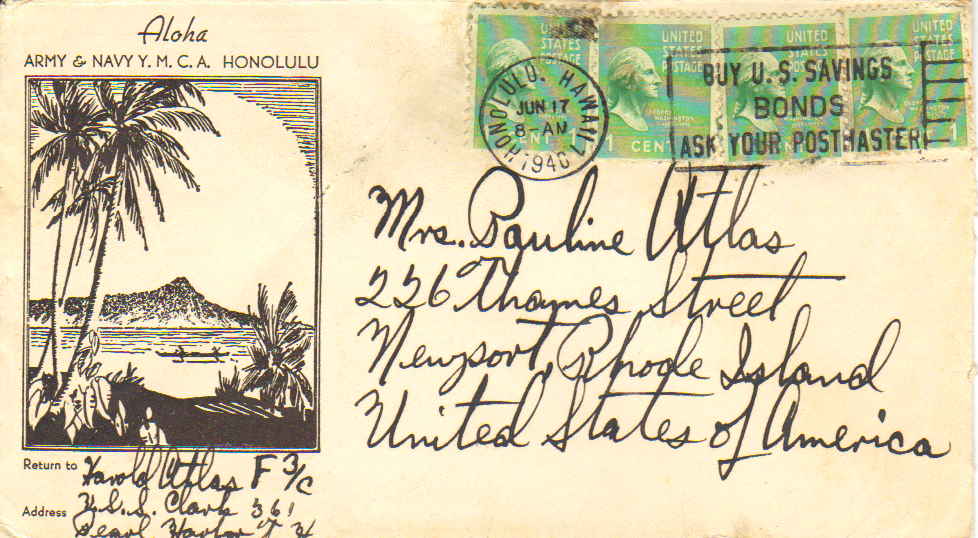 Aloha
ARMY & NAVY Y. M. C. A. HONOLULU
UNITED STATES POSTAGE
1 CENT
UNITED STATES POSTAGE
GEORGE WASHINGTON
1 CENT
UNITED STATES POSTAGE
UNITED STATES POSTAGE
1
HONOLULU, HAWAII
JUN 17
8-AM
1940
BUY U.S. SAVINGS
BONDS
ASK YOUR POSTMASTER
Mrs. Pauline Atlas
226 Thames Street
Newport, Rhode Island
United States of America
Return to Harold Atlas F 3/c
Address U.S.S. Clark 361
Pearl Harbor T H